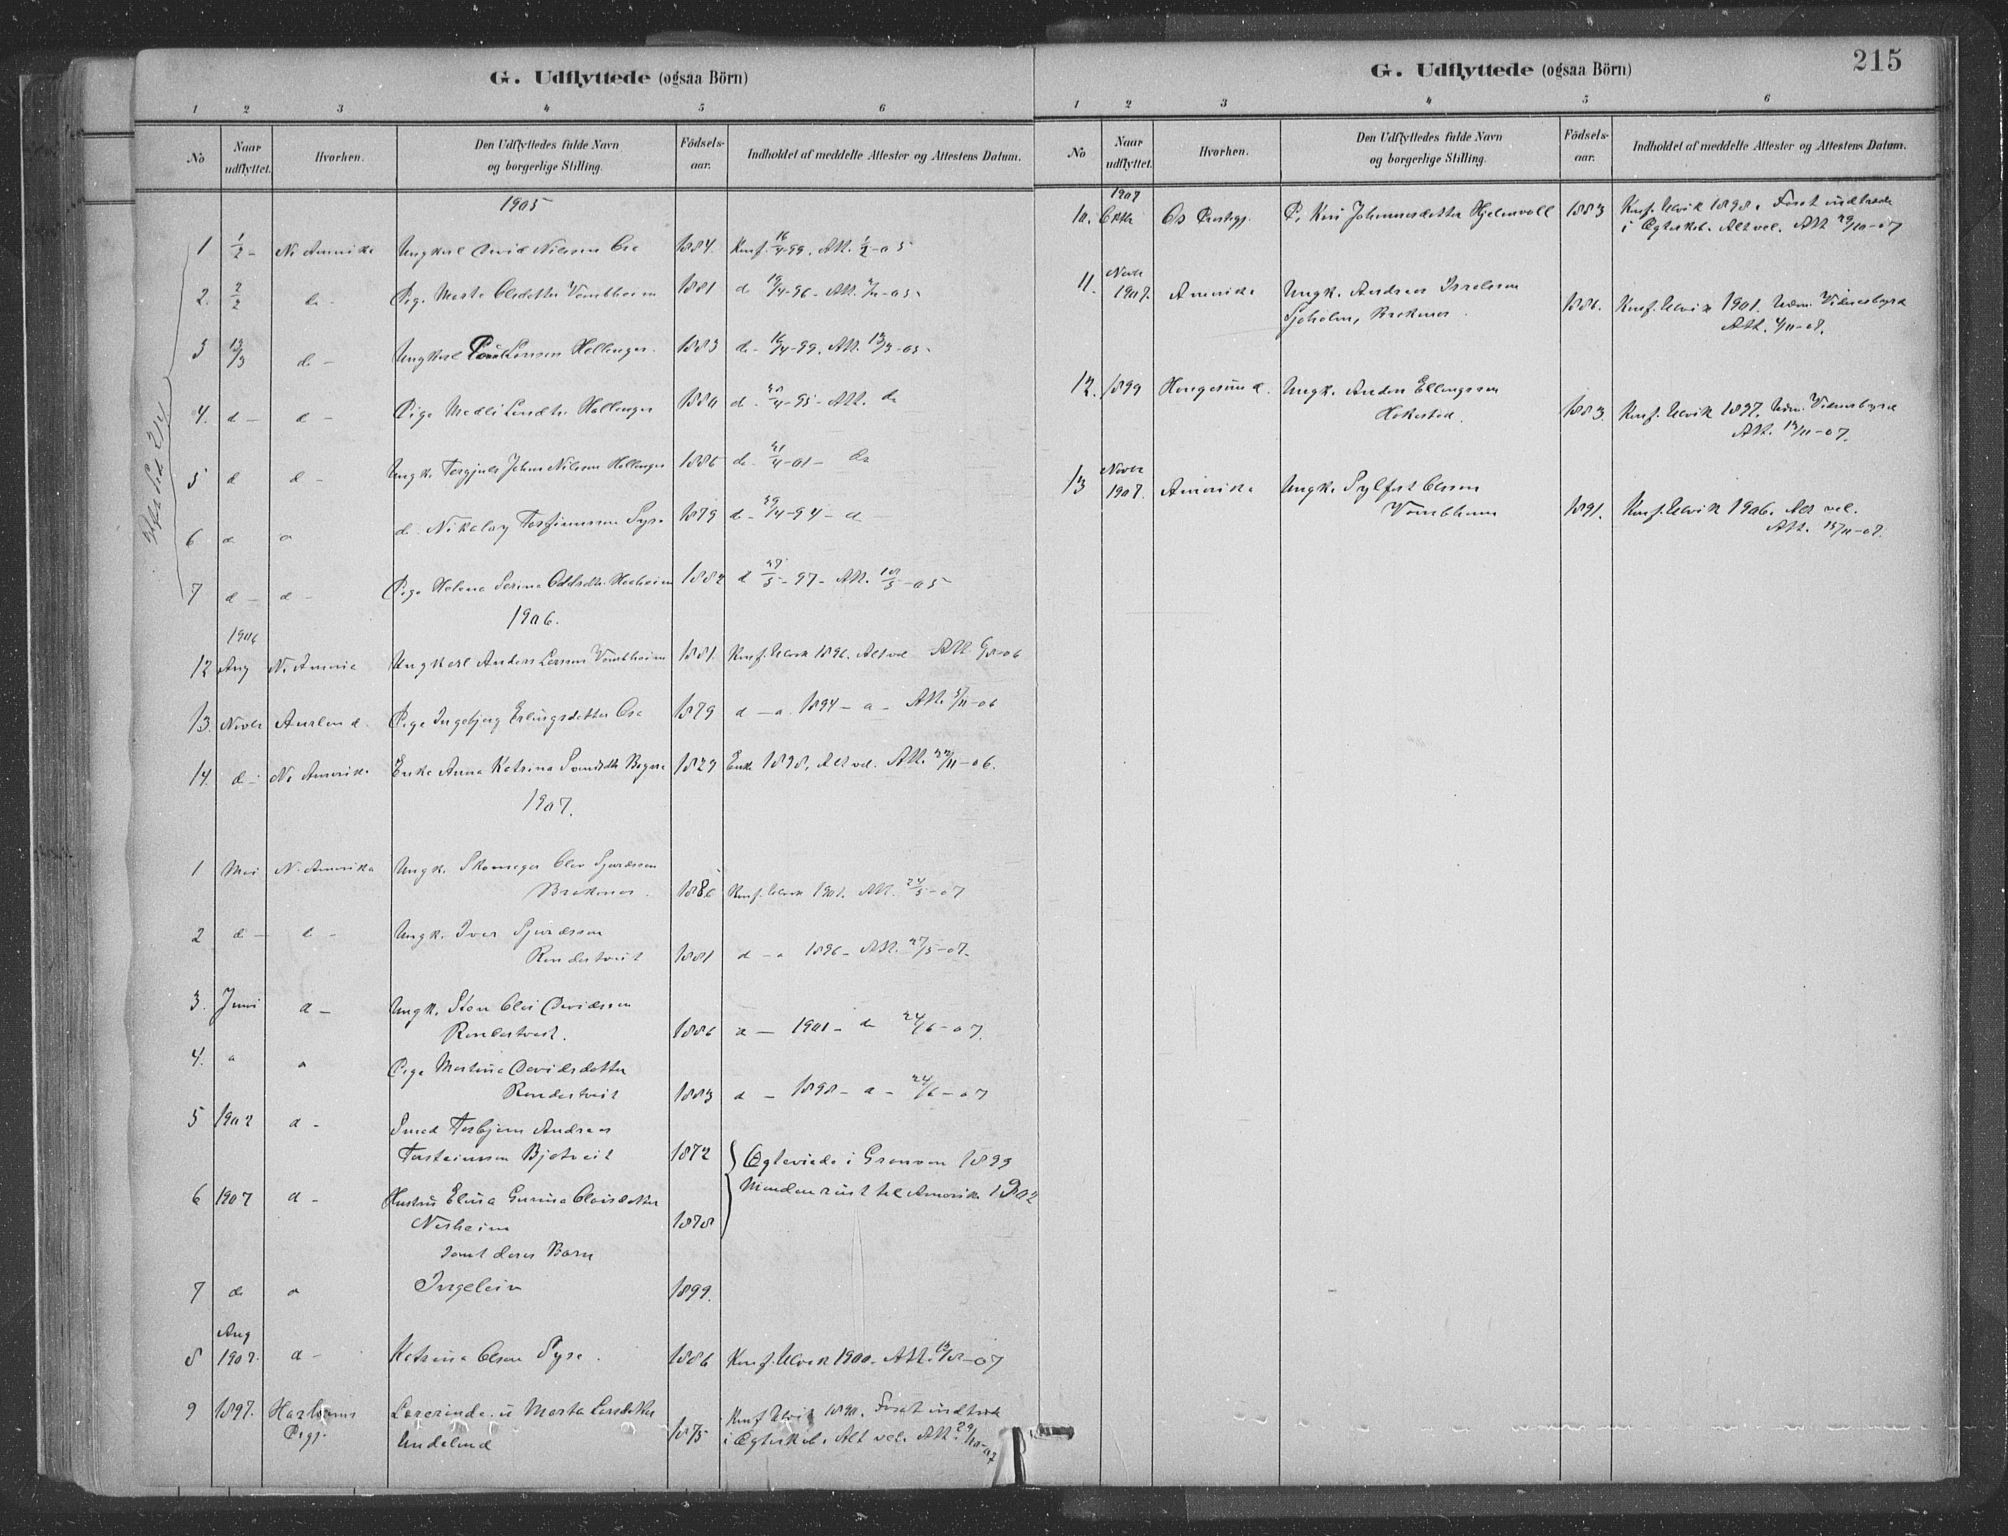 G. Udflyttede (ogsaa Börn)
1 2 3 4 5 6
No
Naar udflyttet.
Hvorhen.
Den Udflyttedes fulde Navn og borgerlige Stilling.
Födsels-aar.
Indholdet af meddelte Attester og Attestens Datum.
1905
1 1/2 - N. Amerika Ungkarl David Nilssen Ose 1884. Konf. 16/4-99. Att. 1/2-05
2. 2/2 d- Pige Marta Olsdatter Vambheim 1881 d
3 13/3 d- Ungkarl Larssen Hallanger. 1883 d- 16/4-99. Att. 13/3-05-
4. d- d- Pige Larsdtr. Hallanger 1880 d- Att. do
5 d d- Ungk. Torgjuls Johan Nilssen Hallanger 1886 d- 21/4-01- do
6 d d d. Nikolay Torfinnssen Syse 1879 d- 29/4-94- d-
7 d- d- Pige Helena Serina 1882 d 27/5-97- Att. 10/3-05
1906.
1906
12 Aug N. Amerik Ungkarl Anders Larssen Vambheim 1881. Konf. Ulvik 1896. Alt vel Att. -06
13. Novbr Aurland. Pige Ingebjerg Erlingsdatter Ose 1879 d - d. 1894 - d - Att. 5/11-06
14. d- N. Amerika Enke Anna Katrina 1829 Enke 1898. Alt vel. Att. 22/11-06.
1907.
1 Mai N. Amerika Ungk. Skomager Olav Sjurdssen
Brakenes. 1886 Konf. Ulvik 1901. Att. 24/5-07
2 d- d- Ungk. Iver Sjurdssen
Rondestveit 1881 d - d 1896- Att. 27/5-07.
3. Juni d- Ungk. Sten Olai Davidssen
Rondestveit. 1886 d - 1901 - d 24/6-07.
4. d d Pige Martina Davidsdatter
Rondestveit 1883 d - 1898 - d - 24/6-07
5 1902 d- Smed Torbjørn Andreas
Torsteinssen Bjotveit 1872 Ægteviede i Granven 1899
6 1907 d- Hustru Elina Gurina Olavsdatter Manden reist til Amerika 1902
Nesheim 1878
samt deres Barn
7 d d Ingeleiv 1899.
Aug
8 1907. d- Katrina Olsen Syse. 1886 Konf. Ulvik 1900. Att. -07
9 1897. Lærerinde Marta Larsdatter Konf. Ulvik 1890. Forat indtræde
Pgj. Undeland 1875 i Ægteskab. Alt vel. Att. 29/10-07
G. Udflyttede (ogsaa Börn)
215
1 2 3 4 5 6
No
Naar udflyttet.
Hvorhen.
Den Udflyttedes fulde Navn og borgerlige Stilling.
Födsels-aar.
Indholdet af meddelte Attester og Attestens Datum.
1907
10. Oktb Os Prestgj. P. Kari Johannesdatter Hjelmvoll 1883 Konf. Ulvik 1898. Forat indtræde
i Ægteskab. Alt vel. Att 29/10-07
Novbr
11. 1907. Amerika Ungk. Andreas Isselssen
Sjoholm, Brakenes. 1886. Konf. Ulvik 1901. Udm. Vidnesbyrd
Att. 4/11-07.
12. 1899 Haugesund. Ungk. Anders Ellingssen
Hakestad. 1883. Konf. Ulvik 1897. Udm. Vidnesbyrd
Att. 13/11-07.
Novbr
13 1907. Amerika Ungk. Sylfest Olssen
Vambheim 1891. Konf. Ulvik 1906. Alt vel.
Att. 15/11-07.